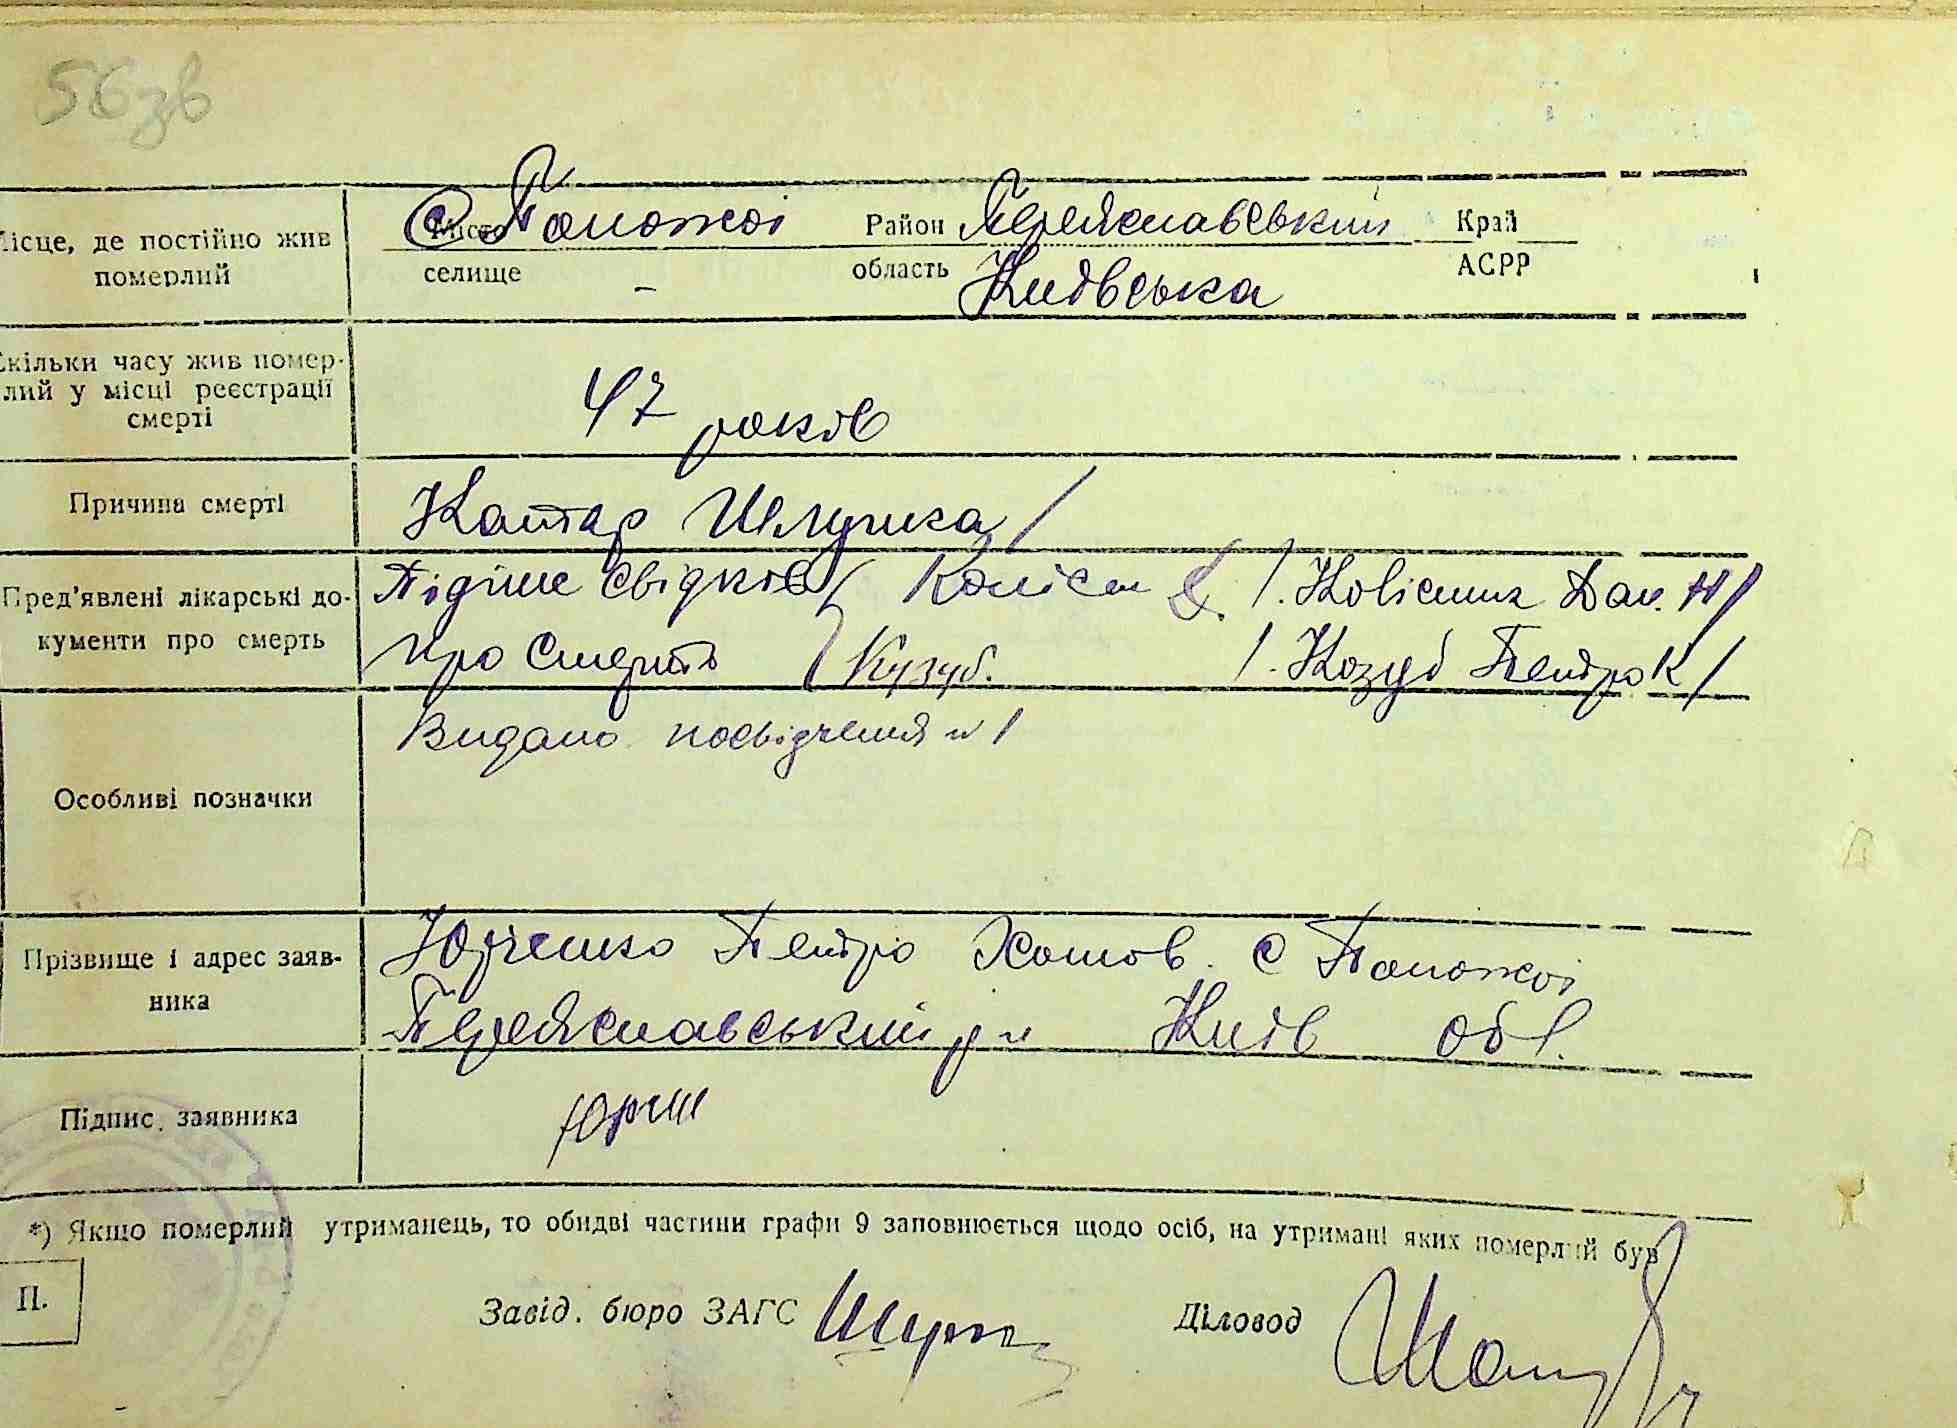 56зв
Місце, де постійно жив
померлий
Місто
с Помоклі Район Переяславський Край
селище - область Київська АСРР
Скільки часу жив помер-
лий у місці реєстрації
смерті
47 років
Причина смерті
Катар Шлунка
Пред’явлені лікарські до-
кументи про смерть
Підпис свідків
про смерть Козуб Петро К
Особливі позначки
Видано посвідчення № 1
Прізвище і адрес заяв-
ника
Юрченко Петро с
Переяславський р-н Київ обл.
Підпис. заявника
Юрчен
*) Якщо померлий утриманець, то обидві частини графи 9 заповнюється щодо осіб, на утримані яких померлий був
П.
Завід. бюро ЗАГС
Діловод